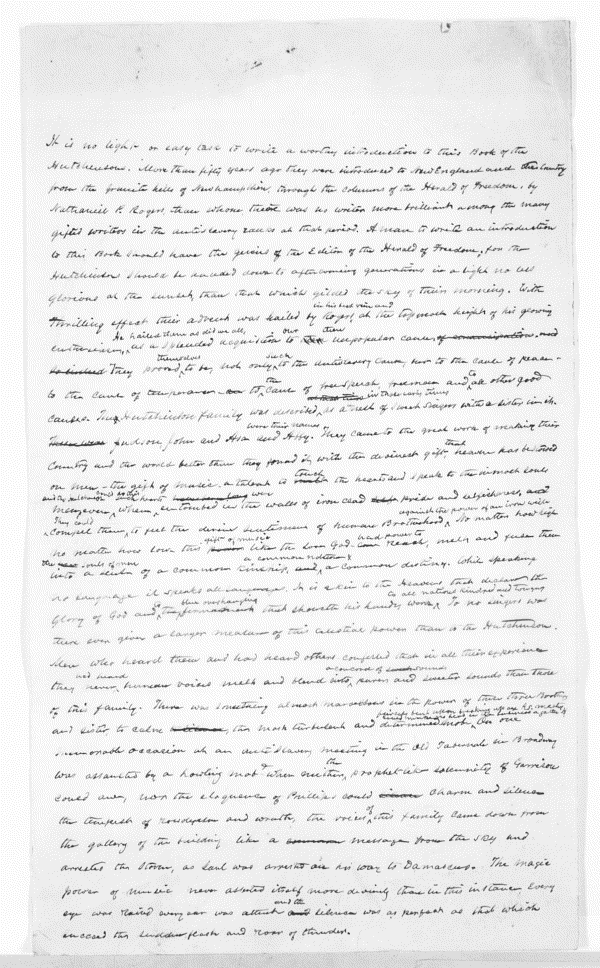 It is no light or easy task to write a worthy introduction to this Book of the
Hutchinsons. More than fifty years ago they were introduced to New England and the Country
from the granite hills of Newhampshire, through the columns of the Herald of Freedom, by
Nathaniel P. Rogers, than whom there was no writer more brilliant among the many
gifted writers in the antislavery ranks at that period. A man to write an introduction
to this Book should have the genius of the Editor of the Herald of Freedom, for the
Hutchinsons should be handed down to aftercoming generations in a light no less
glorious at the sunset, than that which gilded the sky of their morning. With
in his best vein and
thrilling effect their advent was hailed by Rogers, at the topmost heights of his glowing
He hailed them as did we all, our then
enthusiasm, as a splendid acquisition to unpopular cause of emancipation. and
themselves such
They proved to be, not only to the antislavery cause, but to the cause of peace
the to
to the cause of temperance to cause of free speech, freemen and all other good
causes. The Hutchinson family was described as a nest of sweet singers with a sister in it.
were their names
Judson, John and Asa and Abby. They came to the great work of making their
that
Country and the world better than they found it, with the divinest gift, heaven has bestowed
touch
on men - the gift of music, a talent to the heart and speak to the inmost souls
men, even when, entombed in the walls of iron clad pride and selfishness, and
They could against the power of an iron will
compel them, to feel the divine sentiment of human Brotherhood. No matter how high
gift of music had power to
no matter how low this like the love God reach, melt and fuse them
the souls of men a common brotherhood
into a sense of a common kinship, and, a common destiny. While speaking
no language it speaks all languages. It is akin to the Heavens that declare the
to all nations kindred and tongues
Glory of God and the firmament that showeth his handy work. To no singers was
there ever given a larger measure of this celestial power than to the Hutchinsons.
Men who heard them and had heard others confessed that in all their experience
had heard a concord of sounds
they never human voices melt and blend into purer and sweeter sounds than those
of this family. There was something almost marvellous in the power of these three Brothers
and sister to calm the most turbulent and determined mob. On one
memorable occasion at an antislavery meeting in the Old Tabernacle in Broadway
the
was assaulted by a howling mob when neither, prophet-like solemnity of Garrison
could awe, nor the eloquence of Phillips could charm and silence
of
the tempest of rowdyism and wrath, the voices this family came down from
the gallery of the building like a message from the sky and
arrested the storm, as Saul was arrested his way to Damascus. The magic
power of music never asserted itself more divinely than in this instance. Every
and the
eye was raised every ear was attent and silence was as perfect as that which
succeed the sudden flash and roar of thunder.